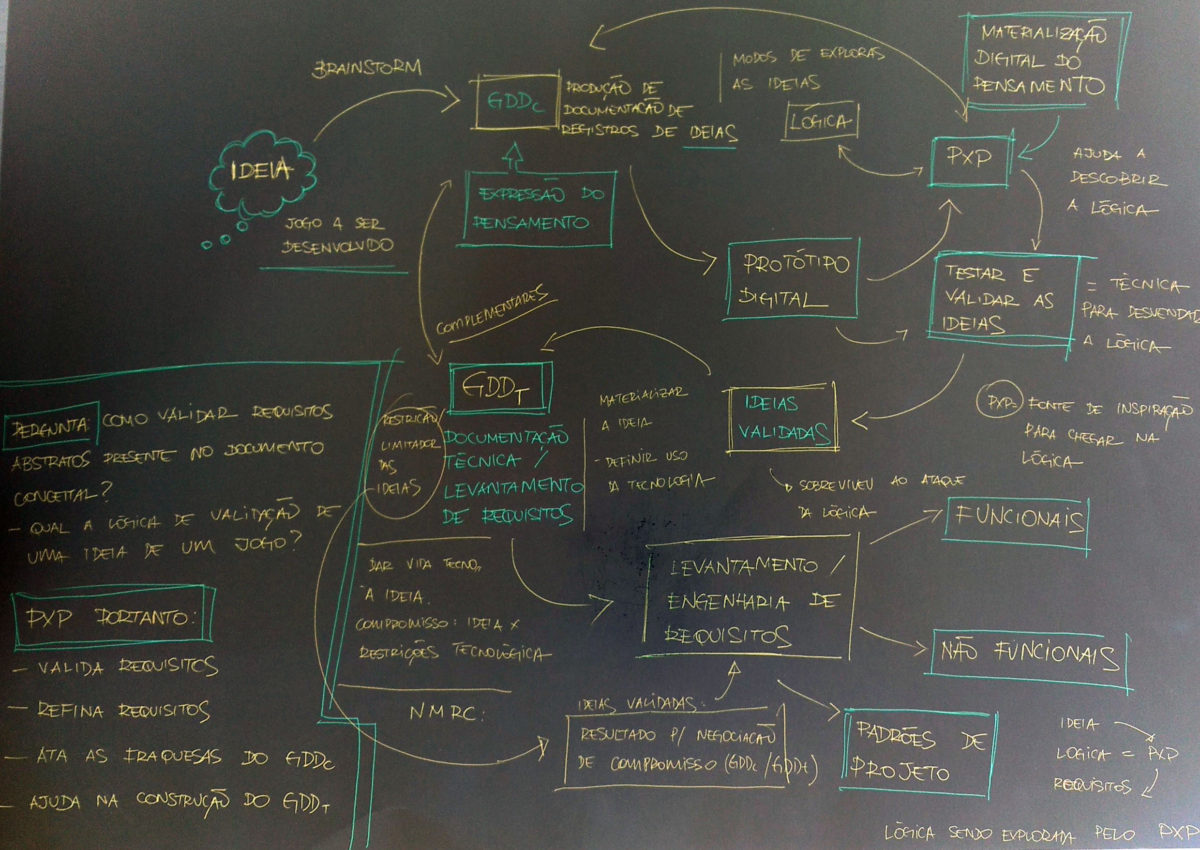 BRAINSTORM
IDEIA
JOGO A SER
DESENVOLVIDO
GDDc
PRODUÇÃO DE
DOCUMENTAÇÃO DE
REGISTROS DE IDEIAS
EXPRESSÃO DO
PENSAMENTO
MODOS DE EXPLORAS
AS IDEIAS
LÓGICA
MATERIALIZAÇÃO
DIGITAL DO
PENSAMENTO
PXP
AJUDA A
DESCOBRIR
A LÓGICA
PROTÓTIPO
DIGITAL
TESTAR E
VALIDAR AS
IDEIAS
= TÉCNICA
PARA DESVENDAR
A LÓGICA
COMPLEMENTARES
GDDT
RESTRIÇÃO
LIMITADOR
DAS
IDEIAS
DOCUMENTAÇÃO
TÉCNICA /
LEVANTAMENTO
DE REQUISITOS
MATERIALIZAR
A IDEIA
- DEFINIR USO
DA TECNOLOGIA
IDEIAS
VALIDADAS
SOBREVIVEU AO ATAQUE
DA LÓGICA
PXP= FONTE DE INSPIRAÇÃO
PARA CHEGAR NA
LÓGICA
PERGUNTA: COMO VALIDAR REQUISITOS
ABSTRATOS PRESENTE NO DOCUMENTO
CONCEITAL?
- QUAL A LÓGICA DE VALIDAÇÃO DE
UMA IDEIA DE UM JOGO?
PXP PORTANTO:
- VALIDA REQUISITOS
- REFINA REQUISITOS
- ATA AS FRAQUESAS DO GDDc
- AJUDA NA CONSTRUÇÃO DO GDDT
DAR VIDA TECNO,
A IDEIA.
COMPROMISSO: IDEIA X
RESTRIÇÕES TECNOLÓGICA
NMRC:
LEVANTAMENTO /
ENGENHARIA DE
REQUISITOS
FUNCIONAIS
NÃO FUNCIONAIS
IDEIAS VALIDADAS:
RESULTADO P/ NEGOCIAÇÃO
DE COMPROMISSO (GDDc/GDDt)
PADRÕES DE
PROJETO
IDEIA
LOGICA = PXP
REQUISITOS
LÓGICA SENDO EXPLORADA PELO PXP